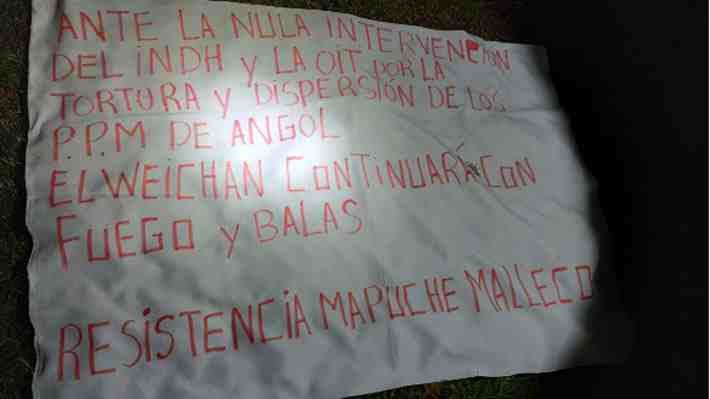 ANTE LA NULA INTERVENCION
DEL INDH y LA OIT POR LA
TORTURA y DISPERSIÓN DE LOS
P.P.M DE ANGOL
EL WEICHAN CONTINUARÁ CON
FUEGO y BALAS
RESISTENCIA MAPUCHE MALLECO